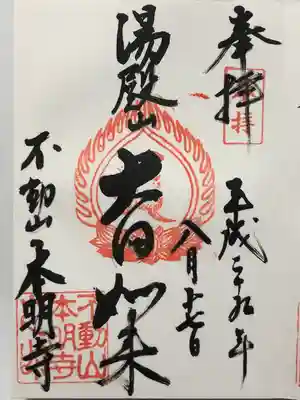 奉拝
拝
平成二十九年
八月
湯殿山
大日如来
不動山本明寺
不動山
本明寺